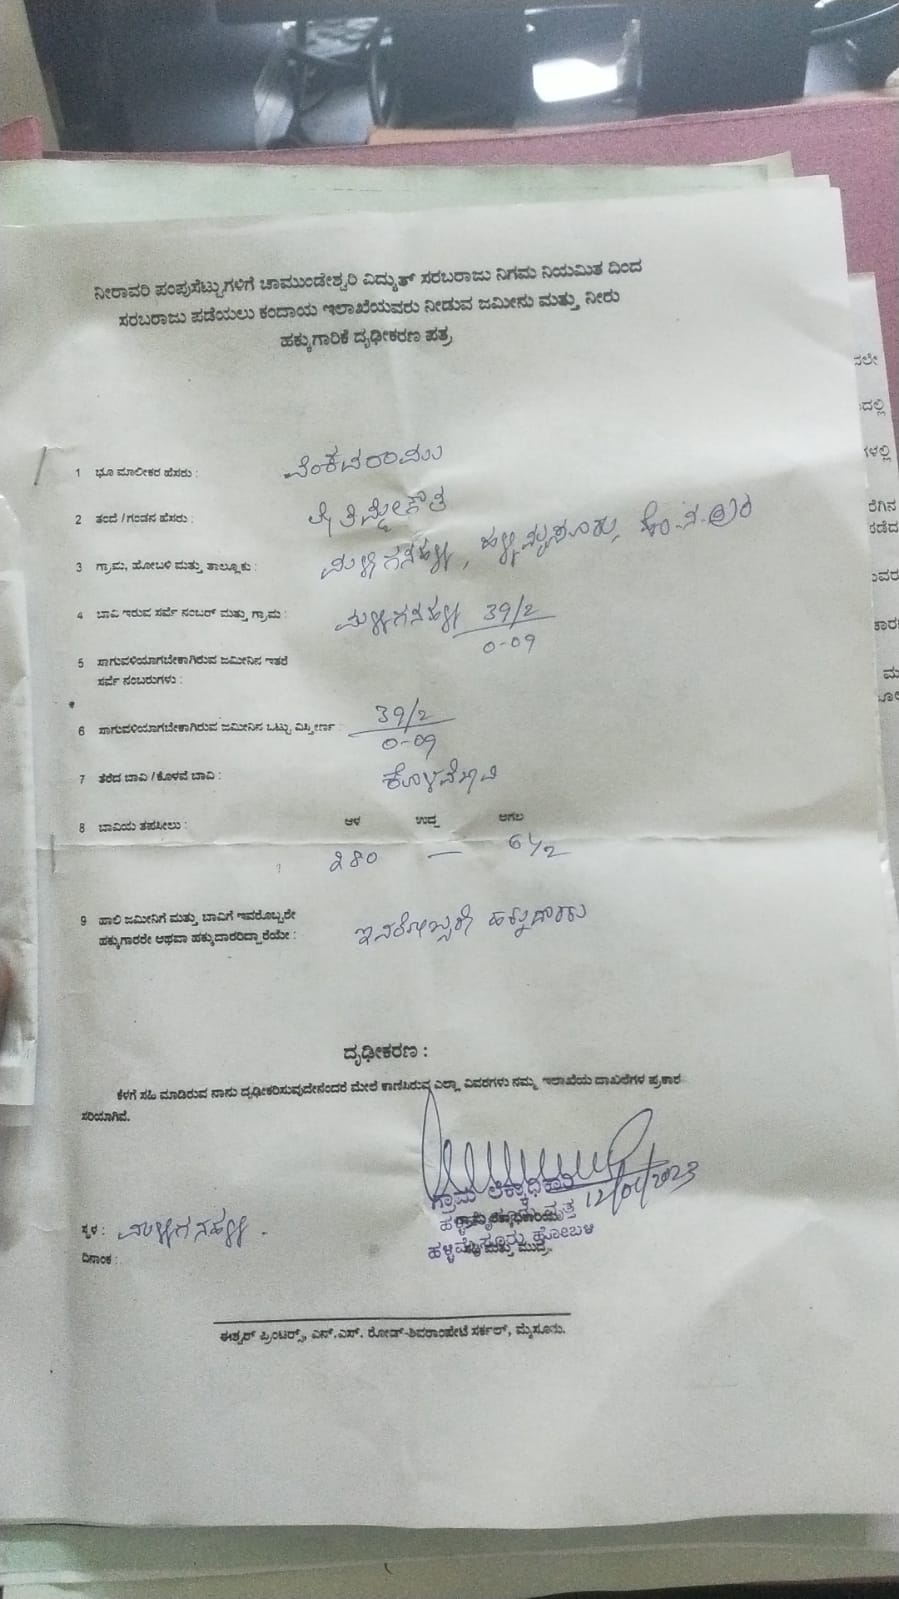 ನೀರಾವರಿ ಪಂಪುಸೆಟ್ಟುಗಳಿಗೆ ಚಾಮುಂಡೇಶ್ವರಿ ವಿದ್ಯುತ್ ಸರಬರಾಜು ನಿಗಮ ನಿಯಮಿತ ದಿಂದ
ಸರಬರಾಜು ಪಡೆಯಲು ಕಂದಾಯ ಇಲಾಖೆಯವರು ನೀಡುವ ಜಮೀನು ಮತ್ತು ನೀರು
ಹಕ್ಕುಗಾರಿಕೆ ದೃಢೀಕರಣ ಪತ್ರ
1 ಭೂ ಮಾಲೀಕರ ಹೆಸರು : ವೆಂಕಟರಾಮು
2 ತಂದೆ/ಗಂಡನ ಹೆಸರು : ತಿಮ್ಮೇಗೌಡ
3 ಗ್ರಾಮ, ಹೋಬಳಿ ಮತ್ತು ತಾಲ್ಲೂಕು : ಮಳ್ಳಿಗನಹಳ್ಳಿ, ಹಳ್ಳಿಮೈಸೂರು,
4 ಬಾವಿ ಇರುವ ಸರ್ವೆ ನಂಬರ್ ಮತ್ತು ಗ್ರಾಮ : ಮಳ್ಳಿಗನಹಳ್ಳಿ 39/2
0-09
5 ಸಾಗುವಳಿಯಾಗಬೇಕಾಗಿರುವ ಜಮೀನಿನ ಇತರೆ
ಸರ್ವೆ ನಂಬರುಗಳು :
6 ಸಾಗುವಳಿಯಾಗಬೇಕಾಗಿರುವ ಜಮೀನಿನ ಒಟ್ಟು ವಿಸ್ತೀರ್ಣ : 39/2
0-09
7 ತೆರೆದ ಬಾವಿ/ಕೊಳವೆ ಬಾವಿ : ಕೊಳವೆಬಾವಿ
8 ಬಾವಿಯ ತಪಸೀಲು : ಆಳ ಉದ್ದ ಅಗಲ
280 — 6½
9 ಹಾಲಿ ಜಮೀನಿಗೆ ಮತ್ತು ಬಾವಿಗೆ ಇವರೊಬ್ಬರೇ
ಹಕ್ಕುಗಾರರೇ ಅಥವಾ ಹಕ್ಕುದಾರರಿದ್ದಾರೆಯೇ : ಇವರೊಬ್ಬರೇ ಹಕ್ಕುದಾರರು
ದೃಢೀಕರಣ :
ಕೆಳಗೆ ಸಹಿ ಮಾಡಿರುವ ನಾನು ದೃಢೀಕರಿಸುವುದೇನೆಂದರೆ ಮೇಲೆ ಕಾಣಿಸಿರುವ ಎಲ್ಲಾ ವಿವರಗಳು ನಮ್ಮ ಇಲಾಖೆಯ ದಾಖಲೆಗಳ ಪ್ರಕಾರ
ಸರಿಯಾಗಿವೆ.
12/01/2023
ಗ್ರಾಮ ಲೆಕ್ಕಾಧಿಕಾರಿ
ಹಳ್ಳಿಮೈಸೂರು ವೃತ್ತ
ಹಳ್ಳಿಮೈಸೂರು ಹೋಬಳಿ
ಸಹಿ ಮತ್ತು ಮುದ್ರೆ.
ಸ್ಥಳ : ಮಳ್ಳಿಗನಹಳ್ಳಿ.
ದಿನಾಂಕ :
ಈಶ್ವರ್ ಪ್ರಿಂಟರ್ಸ್, ಎನ್.ಎಸ್. ರೋಡ್-ಶಿವರಾಂಪೇಟೆ ಸರ್ಕಲ್, ಮೈಸೂರು.